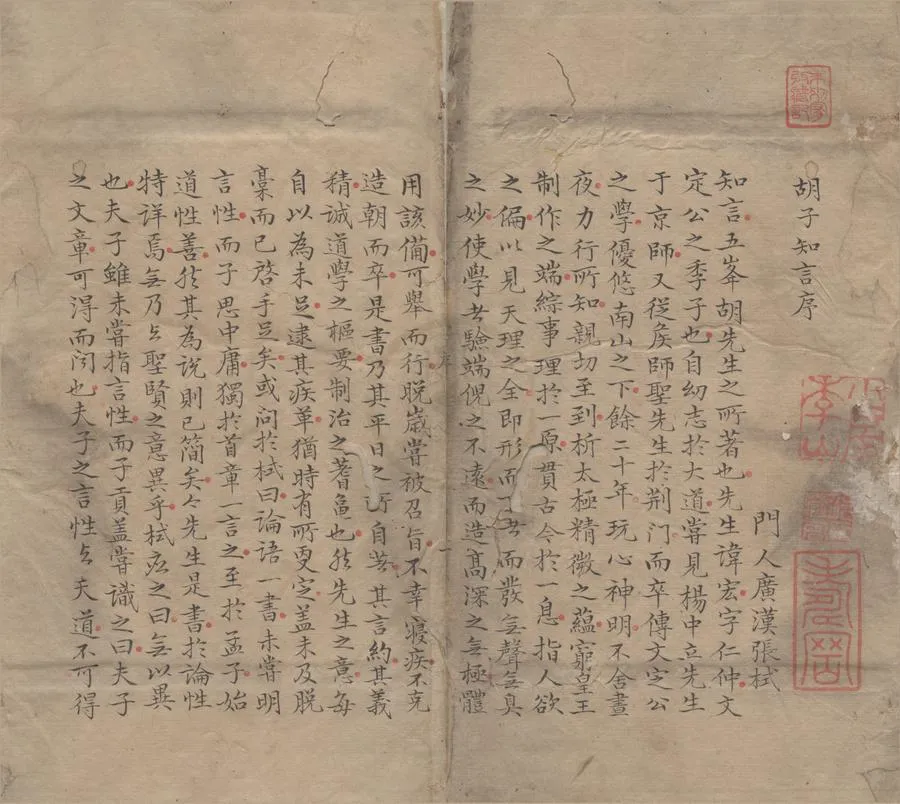 胡子知言序
門人廣漢張栻
知言五峯胡先生之所著也先生諱宏字仁仲文
定公之季子也自幼志於大道嘗見楊中立先生
于京師又從矦師聖先生於荆门而卒傳文定公
之學優悠南山之下餘二十年玩心神明不舍晝
夜力行所知親切至到析太極精微之藴窮皇王
制作之端綜事理於一原貫古今於一息指人欲
之偏以見天理之全即形而下者而發无聲无臭
之妙使學者驗端倪之不遠而造髙深之无極體
用該備可舉而行脱嵗嘗被召旨不幸寝疾不克
造朝而卒是書乃其平日之所自著其言約其義
精誠道學之樞要制治之蓍龜也然先生之意每
自以為未足逮其疾革猶時有所更定盖未及脱
稾而已啓手足矣或问於栻曰論語一書未嘗明
言性而子思中庸獨於首章一言之至於孟子始
道性善然其為說則已簡矣今先生是書於論性
特詳焉无乃与聖賢之意異乎栻应之曰无以異
也夫子雖未嘗指言性而子貢盖嘗識之曰夫子
之文章可得而闻也夫子之言性与天道不可得
李山